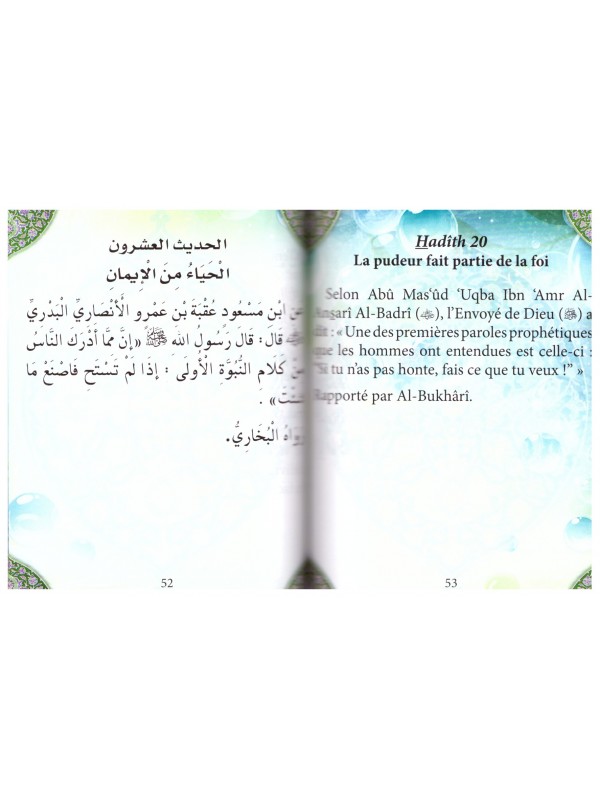 الحديث العشرون
الْحَيَاءُ مِنَ الْإِيمانِ
عَنِ ابْنِ مَسْعُودٍ عُقْبَةَ بْنِ عَمْرٍو الْأَنْصَارِيِّ الْبَدْرِيِّ
ﷺ قالَ: قالَ رَسُولُ اللهِ ﷺ «إِنَّ مِمَّا أَدْرَكَ النَّاسُ
مِنْ كَلَامِ النُّبُوَّةِ الْأُولَى : إِذَا لَمْ تَسْتَحِ فَاصْنَعْ مَا
شِئْتَ» .
رَوَاهُ الْبُخَارِيُّ.
52
Hadîth 20
La pudeur fait partie de la foi
Selon Abû Mas‘ûd ‘Uqba Ibn ‘Amr Al-
Ansarî Al-Badrî (), l’Envoyé de Dieu (ﷺ) a
dit : « Une des premières paroles prophétiques
que les hommes ont entendues est celle-ci :
“Si tu n’as pas honte, fais ce que tu veux !” »
Rapporté par Al-Bukhârî.
53